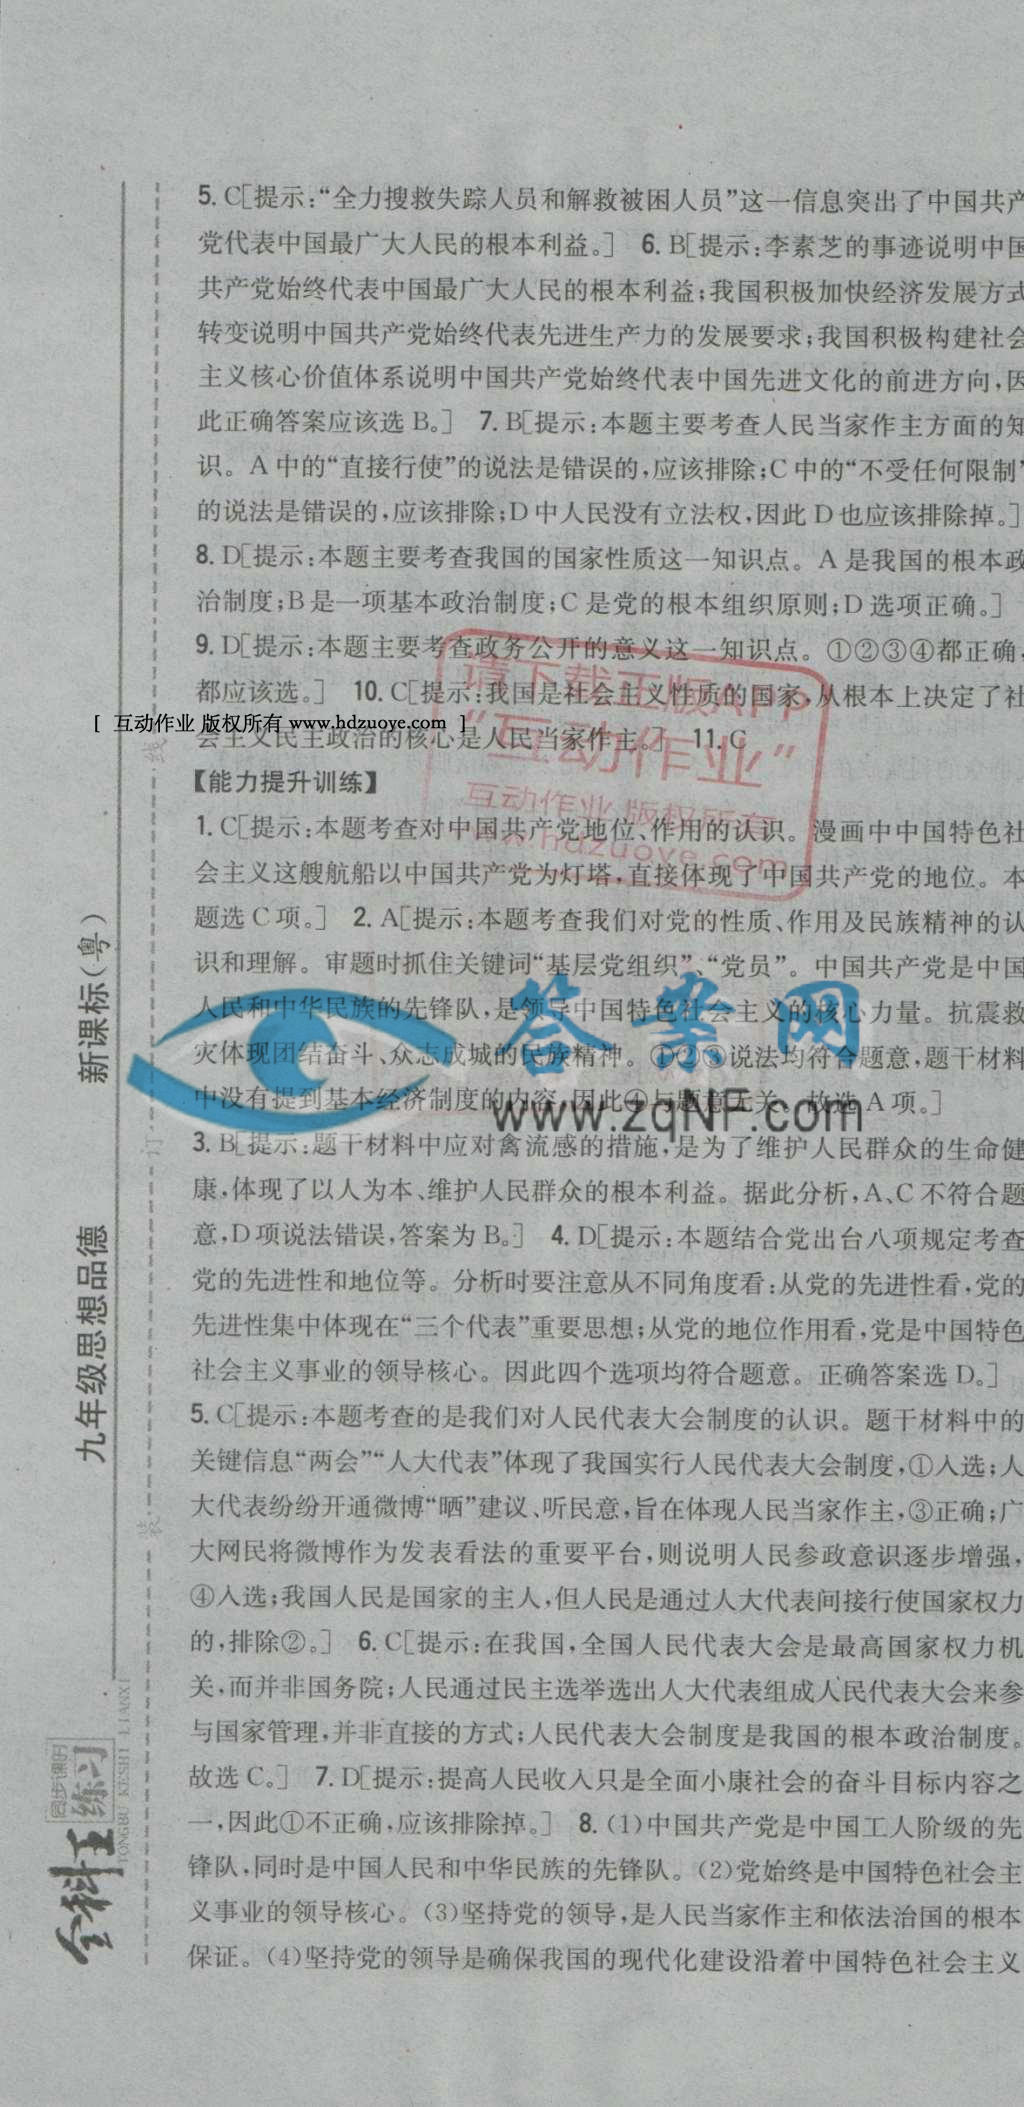 5. C[提示:“全力搜救失踪人员和解救被困人员”这一信息突出了中国共产
党代表中国最广大人民的根本利益。] 6. B[提示:李素芝的事迹说明中国
共产党始终代表中国最广大人民的根本利益;我国积极加快经济发展方式
转变说明中国共产党始终代表先进生产力的发展要求;我国积极构建社会
主义核心价值体系说明中国共产党始终代表中国先进文化的前进方向,因
此正确答案应该选 B。] 7. B[提示:本题主要考查人民当家作主方面的知
识。A 中的“直接行使”的说法是错误的,应该排除;C 中的“不受任何限制”
的说法是错误的,应该排除;D 中人民没有立法权,因此 D 也应该排除掉。]
8. D[提示:本题主要考查我国的国家性质这一知识点。A 是我国的根本政
治制度;B 是一项基本政治制度;C 是党的根本组织原则;D 选项正确。]
9. D[提示:本题主要考查政务公开的意义这一知识点。①②③④都正确,
都应该选。] 10. C[提示:我国是社会主义性质的国家,从根本上决定了社
会主义民主政治的核心是人民当家作主。] 11. C
[ 互动作业 版权所有 www.hdzuoye.com ]
请下载正版APP
“互动作业”
互动作业 版权所有
www.hdzuoye.com
【能力提升训练】
1. C[提示:本题考查对中国共产党地位、作用的认识。漫画中中国特色社
会主义这艘航船以中国共产党为灯塔,直接体现了中国共产党的地位。本
题选 C 项。] 2. A[提示:本题考查我们对党的性质、作用及民族精神的认
识和理解。审题时抓住关键词“基层党组织”、“党员”。中国共产党是中国
人民和中华民族的先锋队,是领导中国特色社会主义的核心力量。抗震救
灾体现团结奋斗、众志成城的民族精神。①②③说法均符合题意,题干材料
中没有提到基本经济制度的内容,因此④与题意无关。故选 A 项。]
答案网
www.zqNF.com
3. B[提示:题干材料中应对禽流感的措施,是为了维护人民群众的生命健
康,体现了以人为本、维护人民群众的根本利益。据此分析,A、C 不符合题
意,D 项说法错误,答案为 B。] 4. D[提示:本题结合党出台八项规定考查
党的先进性和地位等。分析时要注意从不同角度看:从党的先进性看,党的
先进性集中体现在“三个代表”重要思想;从党的地位作用看,党是中国特色
社会主义事业的领导核心。因此四个选项均符合题意。正确答案选 D。]
5. C[提示:本题考查的是我们对人民代表大会制度的认识。题干材料中的
关键信息“两会”“人大代表”体现了我国实行人民代表大会制度,①入选;人
大代表纷纷开通微博“晒”建议、听民意,旨在体现人民当家作主,③正确;广
大网民将微博作为发表看法的重要平台,则说明人民参政意识逐步增强,
④入选;我国人民是国家的主人,但人民是通过人大代表间接行使国家权力
的,排除②。] 6. C[提示:在我国,全国人民代表大会是最高国家权力机
关,而并非国务院;人民通过民主选举选出人大代表组成人民代表大会来参
与国家管理,并非直接的方式;人民代表大会制度是我国的根本政治制度。
故选 C。] 7. D[提示:提高人民收入只是全面小康社会的奋斗目标内容之
一,因此①不正确,应该排除掉。] 8. (1)中国共产党是中国工人阶级的先
锋队,同时是中国人民和中华民族的先锋队。(2)党始终是中国特色社会主
义事业的领导核心。(3)坚持党的领导,是人民当家作主和依法治国的根本
保证。(4)坚持党的领导是确保我国的现代化建设沿着中国特色社会主义
全科王
同步课时
练习
TONGBU KESHI LIANXI
九年级思想品德 新课标(粤)
装 订 线